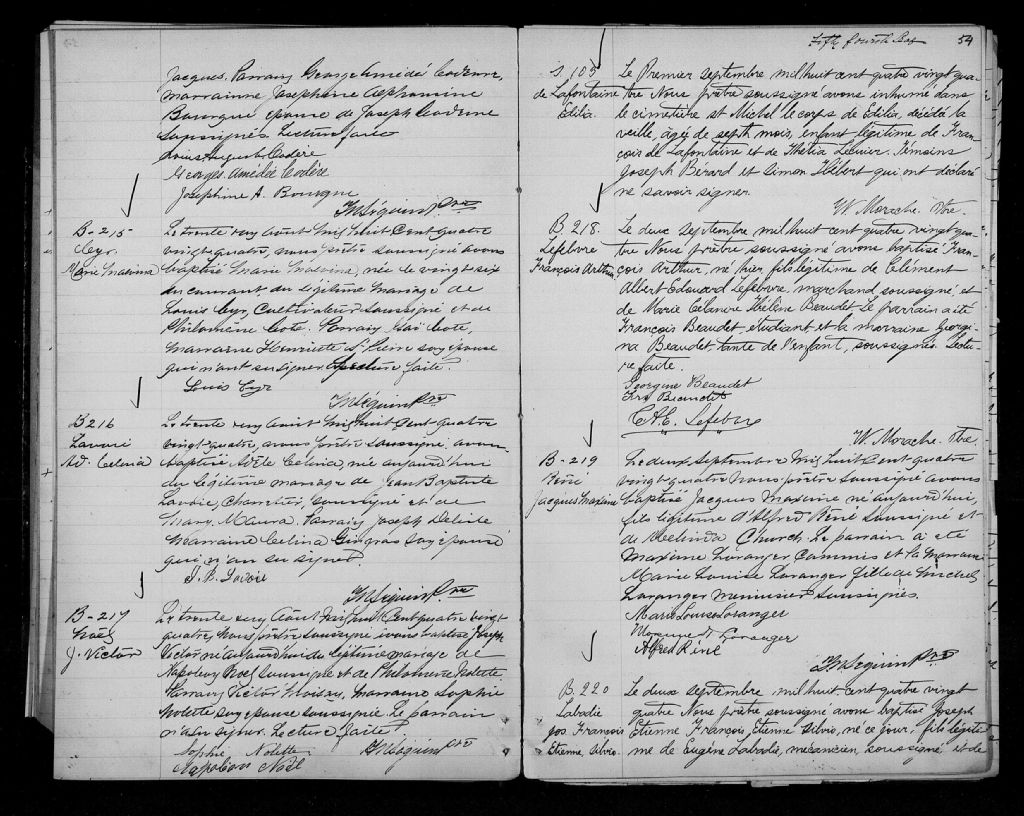 Jacques. Parrain George Amédé Codère,
marrainne Josephine Alphonsine
Bourque épouse de Joseph Codère
soussignés. Lecture faite
Louis August Codère
Georges Amédée Codère
Josephine A. Bourque
Séguin Ptre
B-215
Cyr.
Marie Malvina
Le trente un août mil huit cent quatre
vingt-quatre, nous prêtre soussigné avons
baptisé Marie Malvina, née le vingt six
du courant, du légitime mariage de
Louis Cyr, Cultivateur soussigné et de
Philomène Coté. Parrain Coté,
marraine Henriette St Pierre son épouse
qui n'ont su signer. Lecture faite.
Louis Cyr
Séguin Ptre
B 216
Lavoie
Ad. Celina
Le trente un août mil huit cent quatre
vingt-quatre, nous prêtre soussigné avons
baptisé Adèle Celina, née aujourd'hui
du légitime mariage de Jean Baptiste
Lavoie, Charretier, soussigné et de
Mary Maura. Parrain Joseph Delisle
Marraine Celina son épouse
qui n'on su signer.
J. B. Lavoie
Séguin Ptre
B-217
Noël
J. Victor
Le trente un Août mil huit Cent quatre vingt
quatre, Nous prêtre soussigné avons baptisé Joseph
Victor né aujourd'hui du légitime mariage de
Napoléon Noël soussigné et de Philomène Nolette.
Parrain Victor Marraine Sophie
Nolette son épouse soussignée. Le parrain
n'a su signer. Lecture faite.
Sophie Nolette
Napoléon Noël
Séguin Ptre
Fifty fourth 54
S. 105
Lafontaine
Edilia.
Le Premier septembre mil huit cent quatre vingt qua-
tre Nous prêtre soussigné avons inhumé dans
le cimetière St Michel le corps de Edilia, décédée la
veille, âgée de sept mois, enfant légitime de Fran-
çois de Lafontaine et de Témoins
Joseph Bérard et Simon Hébert qui ont déclaré
ne savoir signer.
W. Morache. Ptre.
B. 218.
Lefebvre
François Arthur
Le deux septembre mil huit cent quatre vingt qua-
tre Nous prêtre soussigné avons baptisé Fran-
çois Arthur, né hier, fils légitime de Clément
Albert Edouard Lefebvre, marchand, soussigné, et
de Marie Célanire Hélène Beaudet. Le parrain a été
François Beaudet étudiant et la marraine Georgi-
na Beaudet tante de l'enfant, soussignés. Lectu-
re faite.
Georgine Beaudet
Frs Beaudet
C. A. E. Lefebvre
W. Morache. Ptre
B-219
Réné
Jacques Maxime
Le deux Septembre mil huit cent quatre
vingt-quatre nous prêtre soussigné avons
baptisé Jacques Maxime né aujourd'hui,
fils légitime d'Alfred Réné soussigné et
de Melinda Church. Le parrain a été
Maxime Loranger Commis et la marraine
Marie Louise Loranger fille de Michel
Loranger menuisier soussignés.
Marie Louise Loranger
Maxime Loranger
Alfred Réné
Séguin Ptre
B. 220
Labadie
Jos. François
Etienne Silvio.
Le deux septembre mil huit cent quatre vingt
quatre Nous prêtre soussigné avons baptisé Joseph
Etienne François Etienne Silvio, né ce jour, fils légiti-
me de Eugène Labadie, mécanicien, soussigné, et de